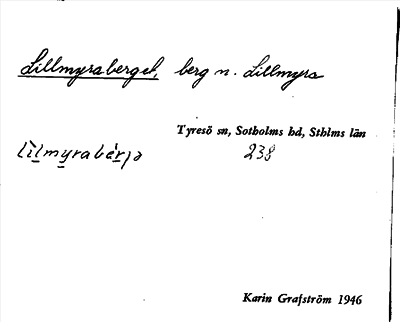 Lillmyraberget, berg n. Lillmyra
Tyresö sn, Sotholms hd, Sthlms län
lìlmyrabærjə 238
Karin Grafström 1946